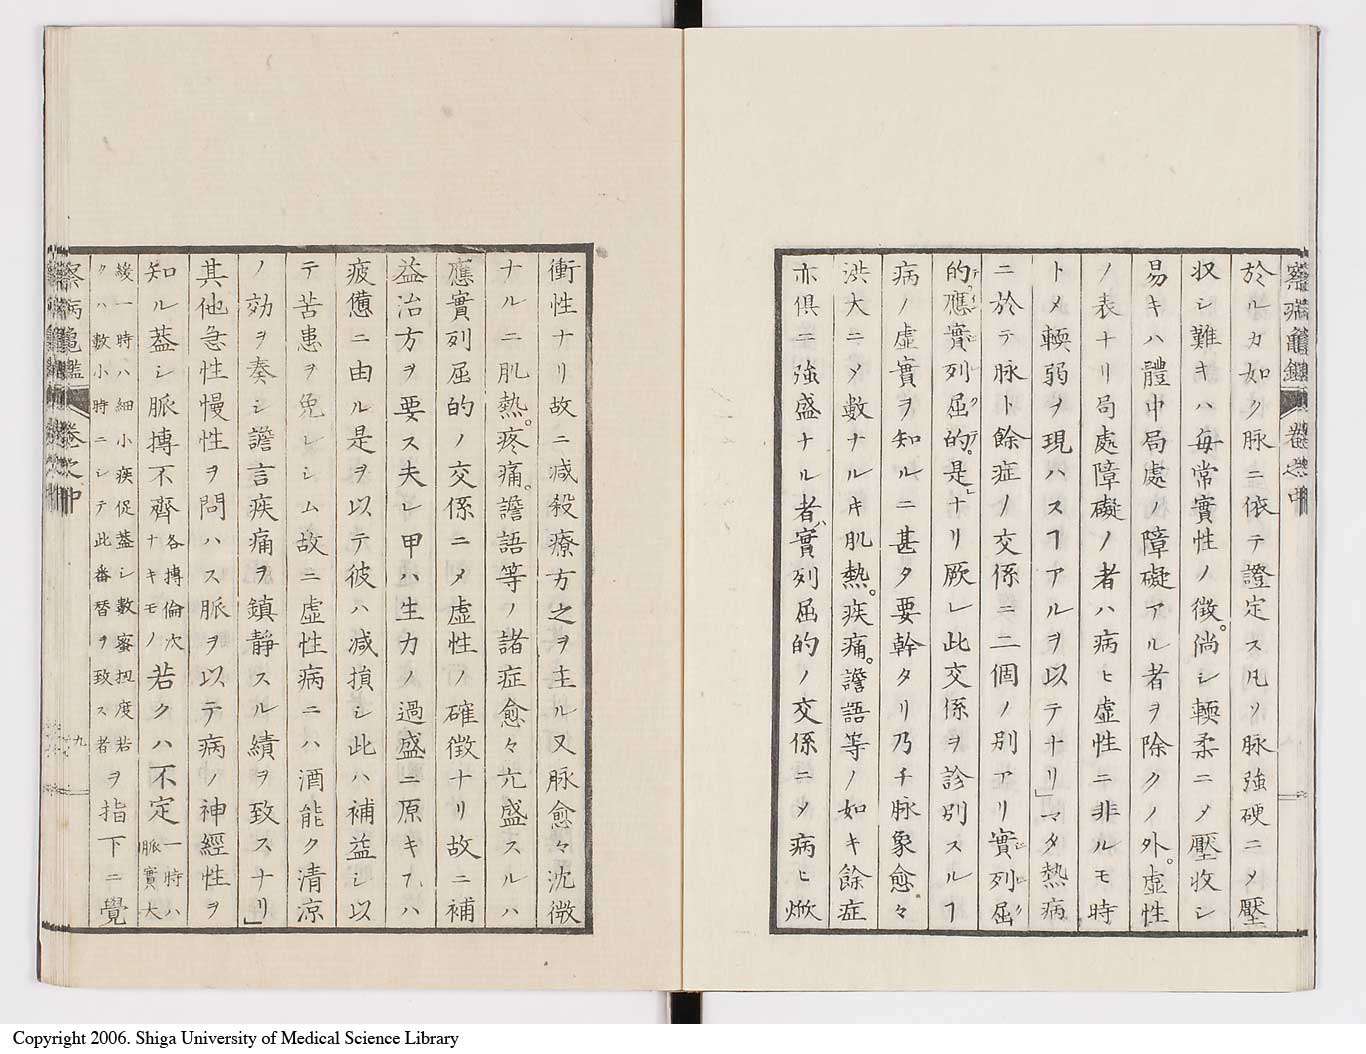 察病龜鑑 卷之中
於ルカ如ク脉ニ依テ證定ス凡ソ脉強硬ニメ壓
収シ難キハ毎常實性ノ徴。倘シ輭柔ニメ壓收シ
易キハ體中局處ノ障礙アル者ヲ除クノ外。虚性
ノ表ナリ局處障礙ノ者ハ病ヒ虚性ニ非ルモ時
トメ輭弱ヲ現ハスヿアルヲ以テナリ」マタ熱病
ニ於テ脉ト餘症ノ交係ニ二個ノ別アリ實列屈
的。應實列屈的。是ナリ厥レ此交係ヲ診別スルヿ
病ノ虚實ヲ知ルニ甚タ要幹タリ乃チ脉象愈々
洪大ニメ數ナルキ肌熱。疾痛。譫語等ノ如キ餘症
亦俱ニ強盛ナル者ハ實列屈的ノ交係ニメ病ヒ焮
衝性ナリ故ニ減殺療方之ヲ主ル又脉愈々沈微
ナルニ肌熱。疼痛。譫語等ノ諸症愈々亢盛スルハ
應實列屈的ノ交係ニメ虚性ノ確徴ナリ故ニ補
益治方ヲ要ス夫レ甲ハ生力ノ過盛ニ原キ乙ハ
疲憊ニ由ル是ヲ以テ彼ハ減損シ此ハ補益シ以
テ苦患ヲ免レシム故ニ虚性病ニハ酒能ク清涼
ノ効ヲ奏シ譫言疾痛ヲ鎮靜スル績ヲ致スナリ」
其他急性慢性ヲ問ハス脈ヲ以テ病ノ神經性ヲ
知ル蓋シ脈搏不齊各搏倫次ナキモノ若クハ不定一時ハ脈實大
緩一時ハ細小疾促蓋シ數審扨度若クハ數小時ニシテ此番替ヲ致ス者ヲ指下ニ覺
察病龜鑑 卷之中
九
Copyright 2006. Shiga University of Medical Science Library